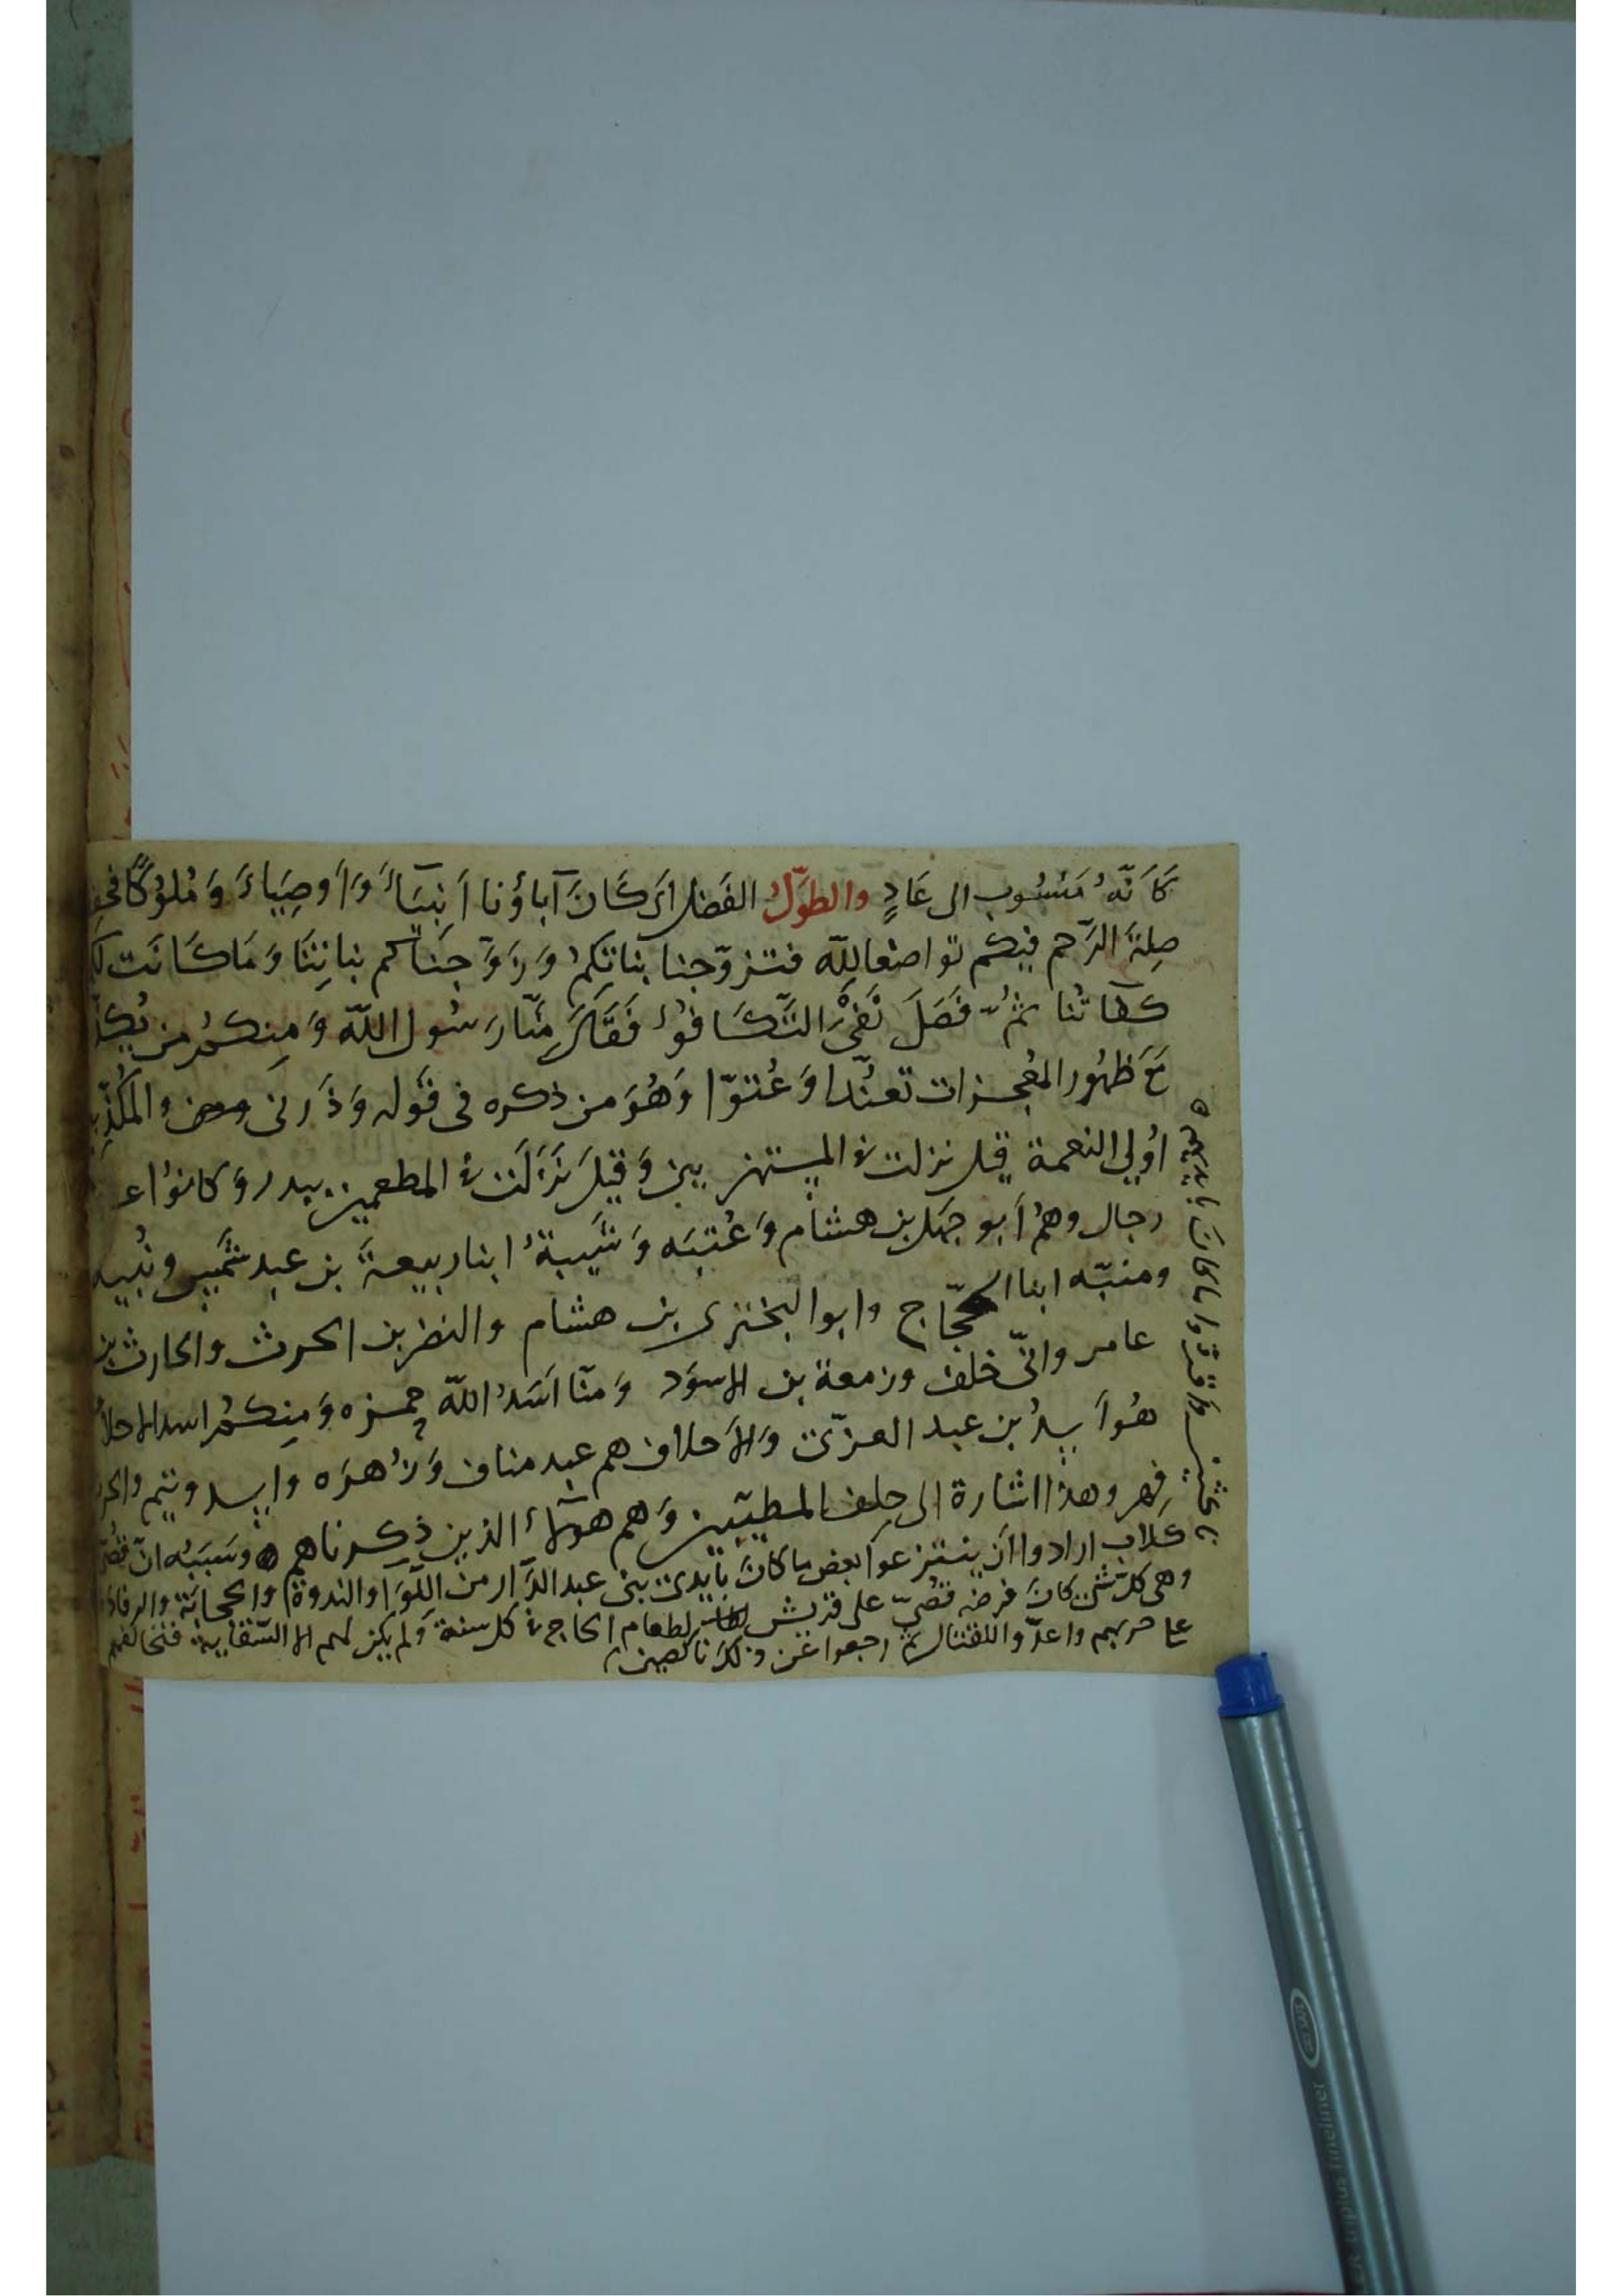 كَاَنّهُ مَنْسُوب الى عَادٍ والطَوّلُ الفَضل اى كَانَ آباؤنا اَنبيَاءَ وَاَوصِيَاءَ وَمُلوُكًا
صِلةَ الرّحم فيكم تواضعا لِلّه فتزوّجنا بناتكم وَزَوّجناكم بناتِنَا وَمَا كَانَت
كفاتنا ثمُّ فَصَلَ نَفىَ التّكَافُؤ فَقَالَ مِنّا رَسُول اللّه وَمِنكمُ من
مَعَ ظهُور المعُجزات تعنّدا وَعُتوّا وَهُوَ من ذكره فى قَوله وَذَرنى والمكُذّبين
اوُلي النعمة قيل نزلت فى المستهزيين وَقيلَ نَزَلَت فى المطعمين ببدر وَكانوُا
رجال وهمُ اَبو جهل بن هشام وَعُتبَه وَشَيبةُ ابنا ربيعَة بن عبد شَمس ونُبيه
ومنبّه ابنا الحجّاج وابو البخترى بن هشام والنضر بن الحرث والحارث بن
عامر واُبىّ خلف وزمعة بن الاسوَد وَمنّا اَسَدُ اللّه حمزه وَمِنكمُ اسد الاحلاف
هُوَ اَسدُ بن عبد العزّى وَالاَحلاف هم عبد مناف وَزُهرَه واسد وتيم والحرث
فِهر وهذا اشارة الى حِلف المطيّبين وَهم هوَلآء الذين ذكرناهم وسَبَبُه انّ
كلاب ارادوا اَن ينتزعوا بعض ما كانَ باَيدى بنى عبد الدّار من اللّوَا والندوة والحجابَة والرفادة
وهى كلّ شئ كانَ فرضه قصُىّ على قريش لطعام الحاج فى كل سنة وَلم يكن لهم الا السّقاية فتخالفهم
على حربهم واعدّوا للقتال ثم رجعوا عَن ذلكَ ناكصين